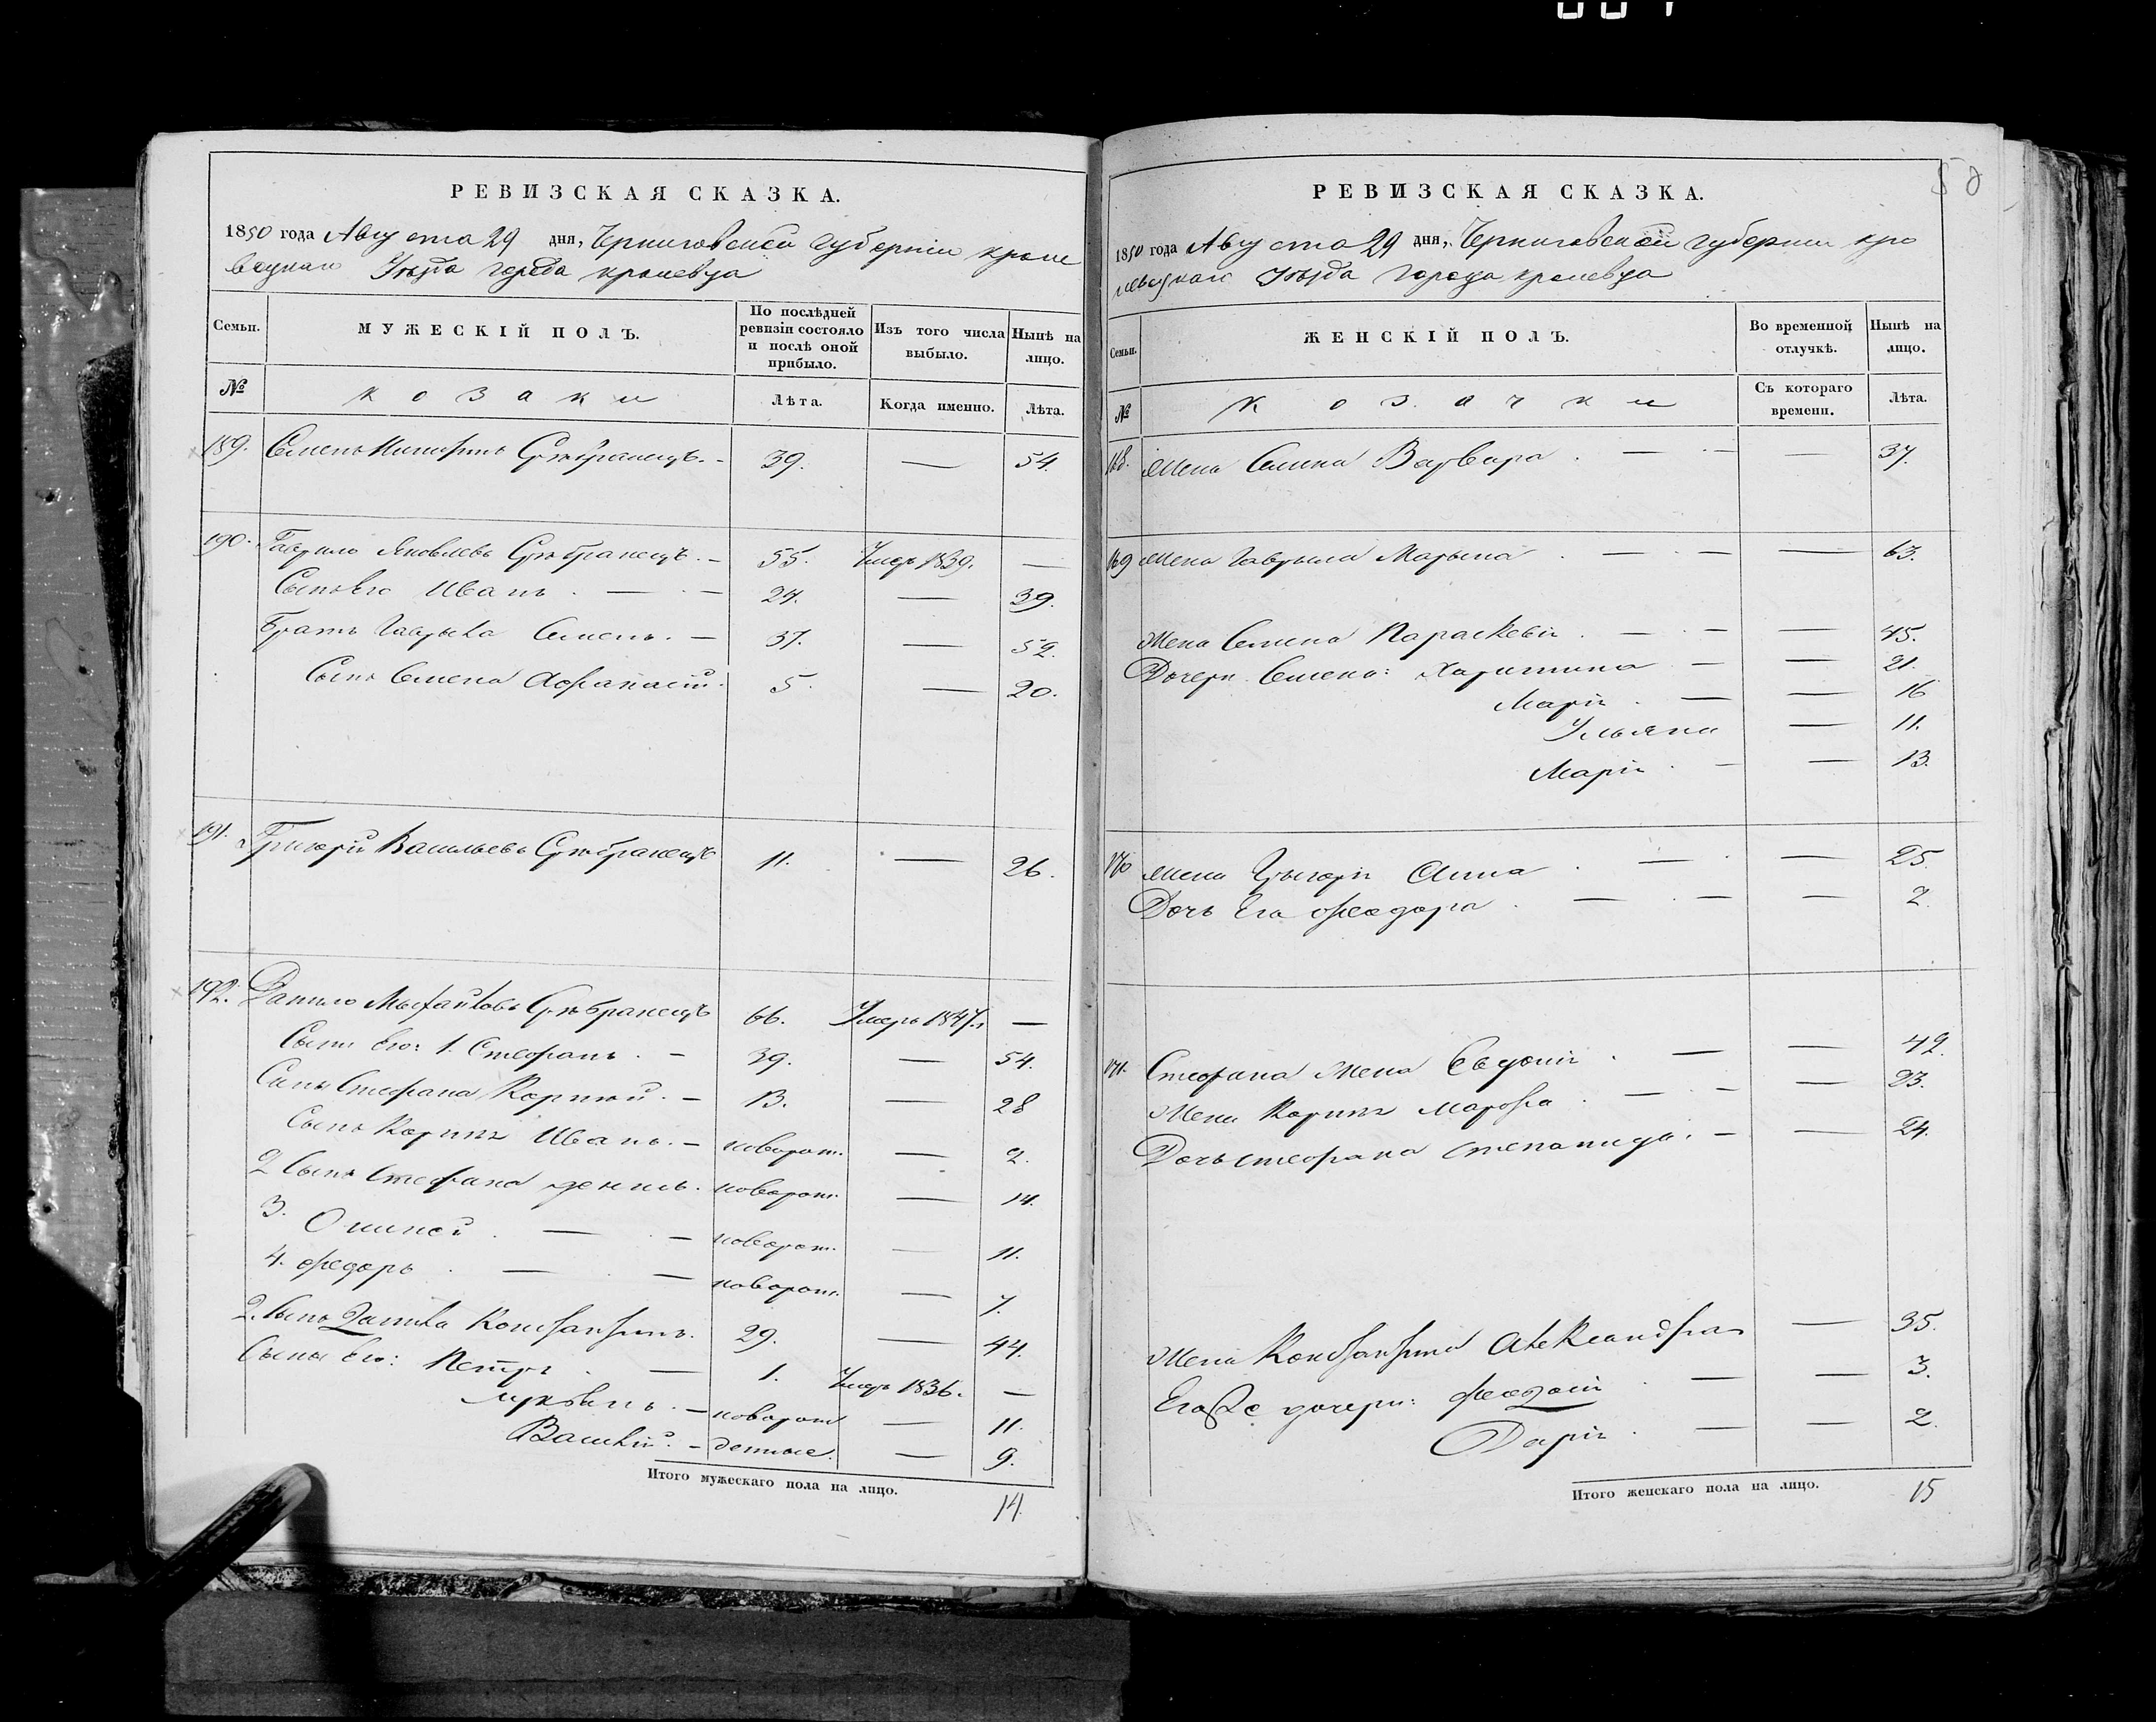 50
РЕВИЗСКАЯ СКАЗКА.
1850 года Августа 29 дня, Черниговской губерніи кроле
вецкаго Уѣзда города кролевца
Семьи.
МУЖЕСКІЙ ПОЛЪ.
По послѣдней ревизіи состояло и послѣ оной прибыло.
Изъ того числа выбыло.
Нынѣ на лицо.
№
козаки
Лѣта.
Когда именно.
Лѣта.
189. Семенъ Сребранецъ. 39. — 54.
190. Гаврило Яковлевъ Сребранецъ. 55. Умеръ 1839. —
Сынъ его Иванъ. 24. — 39.
Братъ Гаврыла Семенъ. 37. — 52.
Сынъ Семена Афанасій. 5. — 20.
191. Григорій Васильевъ Сребранецъ 11. — 26.
192. Данило Сребранецъ 66. Умеръ 1847. —
Сыны его: 1. Стефанъ. 39. — 54.
Сынъ Стефана Корнѣй. 13. — 28
Сынъ Корнѣя Иванъ. новорож. — 2.
2 Сынъ Стефана денисъ. новорож. — 14.
3. новорож. — 11.
4. федоръ новорож. — 7.
2. Сынъ Данила Константинъ. 29. — 44.
Сыны его: Петръ 1. Умеръ 1836. —
новорож — 11.
Василій. денные. — 9.
Итого мужескаго пола на лицо. 14
РЕВИЗСКАЯ СКАЗКА.
1850 года Августа 29 дня, Черниговской губерніи кро
левецкаго Уѣзда города кролевца
Семьи.
ЖЕНСКІЙ ПОЛЪ.
Во временной отлучкѣ.
Нынѣ на лицо.
№
козачки
Съ котораго времени.
Лѣта.
168. Жена Семена Варвара — 37.
169 Жена Гаврыла Марына — 63.
Жена Семена Параскевія — 45.
Дочери Семена: Харитина — 21.
Марія — 16
Ульяна — 11.
Марія — 13.
170 Жена Грыгорія Анна — 25.
Дочь Его Феодора — 2.
171. Стефана Жена Евдокія — 49.
Жена Корнѣя Марфа — 23.
Дочь стефана степанида. — 24.
Жена Константина Александра — 35.
Его же дочери: феодосія — 3.
Дарія — 2.
Итого женскаго пола на лицо. 15